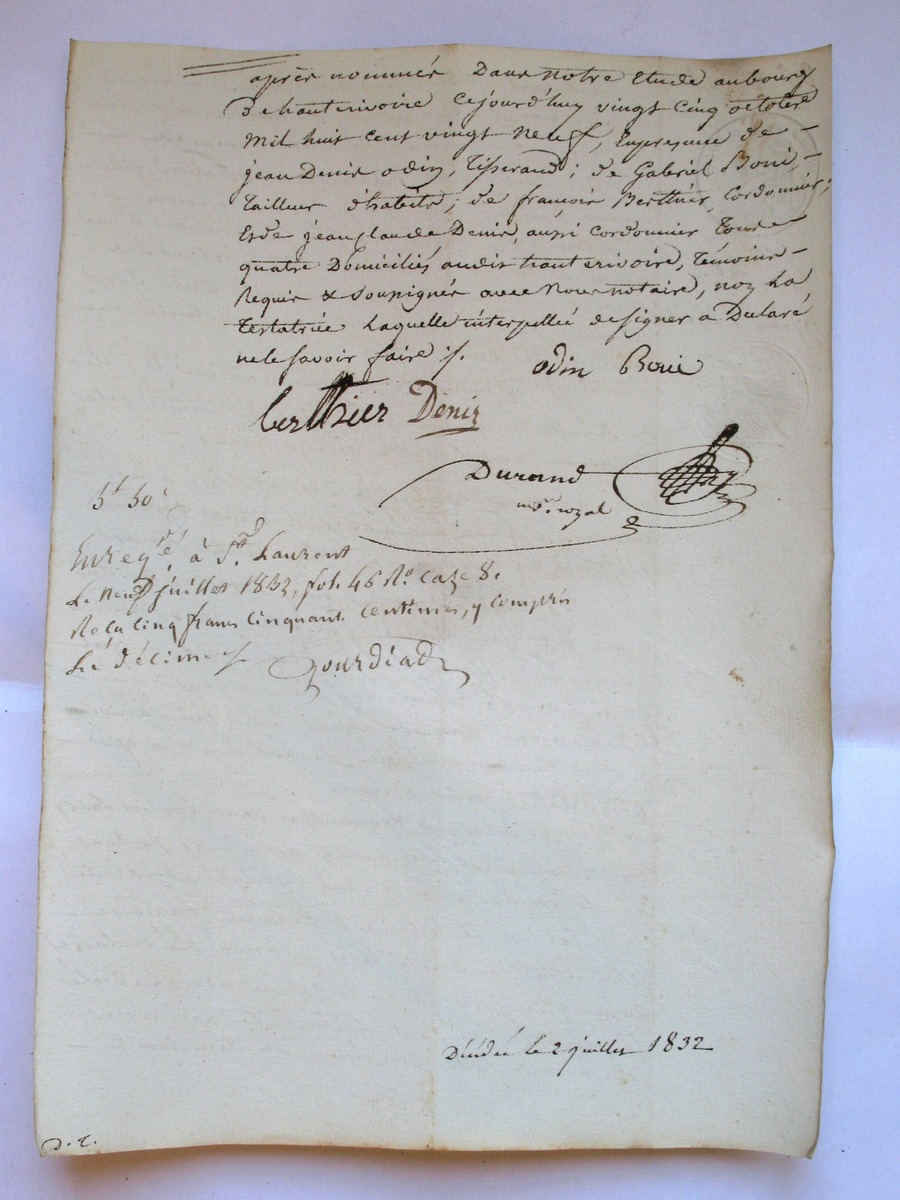 après nommés Dans notre Etude au bourg
De hauterivoire Cejourd'huy vingt cinq octobre
Mil huit cent vingt neuf, Enpresence de —
jean Denis odin, Tisserand; de Gabriel Boui, —
Tailleur d'habits; de françois Berthier, Cordonnier;
Et de jean claude Denis, aussi Cordonnier Tous —
quatre Domiciliés audit hauterivoire, Témoins —
Requis & soussignés avec Nous notaire, non La
Testatrice Laquelle interpellée de signer a Déclaré
ne le savoir faire ./.
odin Boui
berthier Denis
Durand
nore. royal
5f 50c
Enregtré, à St. Laurent
Le neuf juillet 1832, fol. 46 Ro. Case 8.
Reçu cinq francs cinquante centimes, y compris
Le décime ./. Gourdiat
Décédée le 2 juillet 1832
D. T.